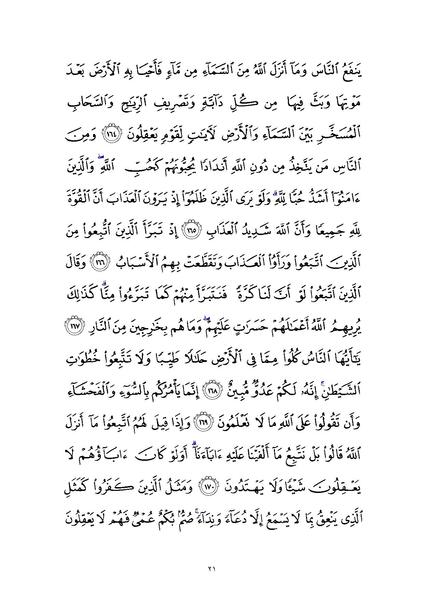 يَنفَعُ ٱلنَّاسَ وَمَآ أَنزَلَ ٱللَّهُ مِنَ ٱلسَّمَآءِ مِن مَّآءٍ فَأَحْيَا بِهِ ٱلْأَرْضَ بَعْدَ
مَوْتِهَا وَبَثَّ فِيهَا مِن كُلِّ دَآبَّةٍ وَتَصْرِيفِ ٱلرِّيَٰحِ وَٱلسَّحَابِ
ٱلْمُسَخَّرِ بَيْنَ ٱلسَّمَآءِ وَٱلْأَرْضِ لَءَايَٰتٍ لِّقَوْمٍ يَعْقِلُونَ ١٦٤ وَمِنَ
ٱلنَّاسِ مَن يَتَّخِذُ مِن دُونِ ٱللَّهِ أَندَادًا يُحِبُّونَهُمْ كَحُبِّ ٱللَّهِ ۖ وَٱلَّذِينَ
ءَامَنُوٓا۟ أَشَدُّ حُبًّا لِّلَّهِ ۗ وَلَوْ يَرَى ٱلَّذِينَ ظَلَمُوٓا۟ إِذْ يَرَوْنَ ٱلْعَذَابَ أَنَّ ٱلْقُوَّةَ
لِلَّهِ جَمِيعًا وَأَنَّ ٱللَّهَ شَدِيدُ ٱلْعَذَابِ ١٦٥ إِذْ تَبَرَّأَ ٱلَّذِينَ ٱتُّبِعُوا۟ مِنَ
ٱلَّذِينَ ٱتَّبَعُوا۟ وَرَأَوُا۟ ٱلْعَذَابَ وَتَقَطَّعَتْ بِهِمُ ٱلْأَسْبَابُ ١٦٦ وَقَالَ
ٱلَّذِينَ ٱتَّبَعُوا۟ لَوْ أَنَّ لَنَا كَرَّةً فَنَتَبَرَّأَ مِنْهُمْ كَمَا تَبَرَّءُوا۟ مِنَّا ۗ كَذَٰلِكَ
يُرِيهِمُ ٱللَّهُ أَعْمَٰلَهُمْ حَسَرَٰتٍ عَلَيْهِمْ ۖ وَمَا هُم بِخَٰرِجِينَ مِنَ ٱلنَّارِ ١٦٧
يَٰٓأَيُّهَا ٱلنَّاسُ كُلُوا۟ مِمَّا فِى ٱلْأَرْضِ حَلَٰلًا طَيِّبًا وَلَا تَتَّبِعُوا۟ خُطُوَٰتِ
ٱلشَّيْطَٰنِ ۚ إِنَّهُۥ لَكُمْ عَدُوٌّ مُّبِينٌ ١٦٨ إِنَّمَا يَأْمُرُكُم بِٱلسُّوٓءِ وَٱلْفَحْشَآءِ
وَأَن تَقُولُوا۟ عَلَى ٱللَّهِ مَا لَا تَعْلَمُونَ ١٦٩ وَإِذَا قِيلَ لَهُمُ ٱتَّبِعُوا۟ مَآ أَنزَلَ
ٱللَّهُ قَالُوا۟ بَلْ نَتَّبِعُ مَآ أَلْفَيْنَا عَلَيْهِ ءَابَآءَنَآ ۗ أَوَلَوْ كَانَ ءَابَآؤُهُمْ لَا
يَعْقِلُونَ شَيْـًٔا وَلَا يَهْتَدُونَ ١٧٠ وَمَثَلُ ٱلَّذِينَ كَفَرُوا۟ كَمَثَلِ
ٱلَّذِى يَنْعِقُ بِمَا لَا يَسْمَعُ إِلَّا دُعَآءً وَنِدَآءً ۚ صُمٌّۢ بُكْمٌ عُمْىٌ فَهُمْ لَا يَعْقِلُونَ
٢١